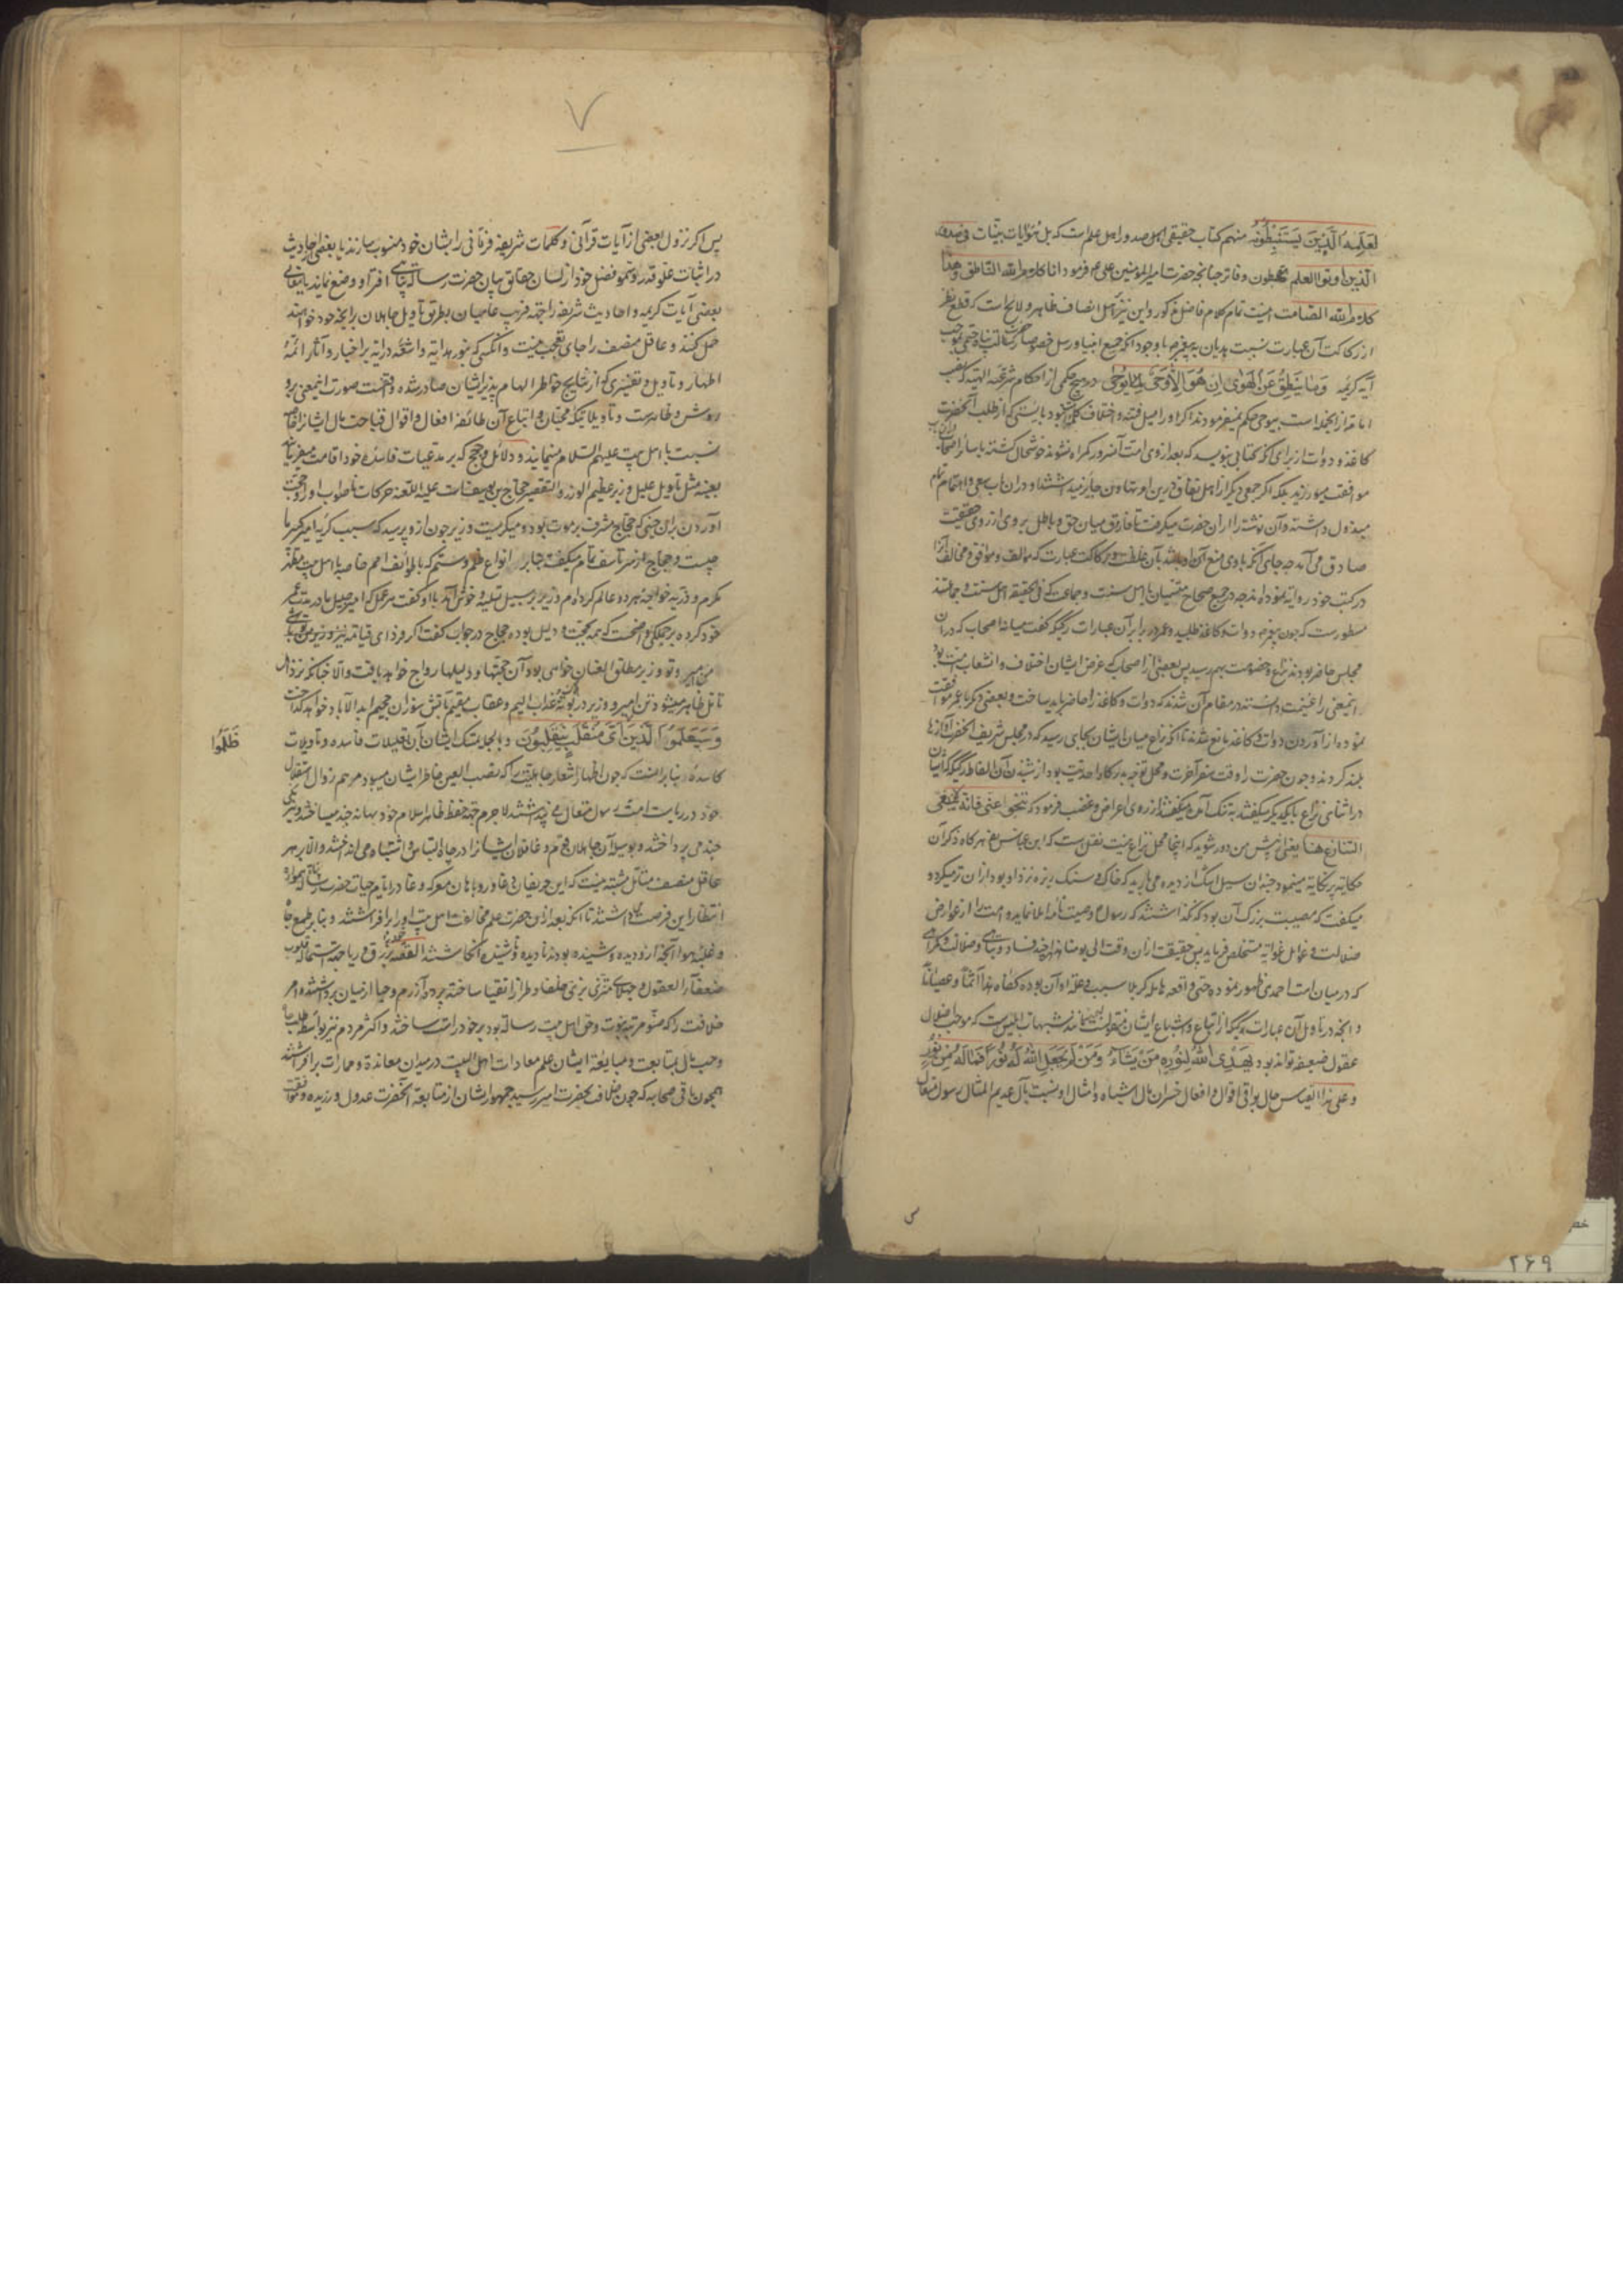 لعلمه الذین یستنبطونه منهم کتاب حقیقی اهل صدور اهل علم است که بل هو آیات بینات فی صدور
الذین اوتوا العلم و فاتر چنانچه حضرت امیر المؤمنین علی فرمود انا کلام الله الناطق و هذا
کلام الله الصامت اینست تمام کلام فاضل مذکور و این نیز بر اهل انصاف ظاهر و لایح است که قطع نظر
از رکاکت آن عبارت نسبت هذیان به پیغمبر با وجود آنکه جمیع انبیا و رسل خصوصا حضرت رسالت پناه
آیه کریمه وَمَا یَنْطِقُ عَنِ الْهَوَی اِنْ هُوَ اِلَّا وَحْیٌ یُوحَی در هیچ حکمی از احکام شرعیه الهیه که
امامت از آنجمله است بیوحی حکم نمیفرمودند اگر او را میل فتنه و اختلاف نبود بایستی که از طلب آنحضرت
کاغذ و دوات از برای آنکه کتابی بنویسد که بعد از وی امت آن سرور گمراه نشوند خوشحال گشته با سایر اصحاب
موافقت میورزید بلکه اگر جمعی دیگر از اهل نفاق درین امر تهاون جایز میداشتند او در آن باب سعی و اهتمام تمام
مبذول داشته و آن نوشته را از آن حضرت میگرفت تا فارق میان حق و باطل بر وی از روی حقیقت
صادق می آمد چه جای آنکه بادی منع آن و رکاکت عبارت که مؤالف و موافق و مخالف آنرا
در کتب خود روایة نموده اند چه در جمیع صحاح اهل سنت و جماعت که فی الحقیقه اهل سنت و جماعتند
مسطور است که چون پیغمبر دوات و کاغذ طلبید و عمر در برابر آن عبارات رکیکه گفت میانه اصحاب که در آن
مجلس حاضر بودند نزاع و خصومت بهم رسید پس بعضی از اصحاب که غرض ایشان اختلاف و انشعاب امت بود
اینمعنی را غنیمت دانسته در مقام آن شدند که دوات و کاغذ را حاضر باید ساخت و بعضی دیگر با عمر موافقت
نموده از آوردن دوات و کاغذ مانع شدند تا آنکه نزاع میان ایشان بجایی رسید که در مجلس شریف آنحضرت آوازها
بلند کردند و چون حضرت را وقت سفر آخرت و محل توجه بدرگاه احدیت بود از شنیدن آن الفاظ رکیکه که ایشان
در اثنای نزاع با یکدیگر میگفتند به تنگ آمده از روی اعراض و غضب فرمود که تنحوا عنی فانه لا ینبغی
التنازع هنا یعنی از پیش من دور شوید که اینجا محل نزاع نیست نقلست که ابن عباس هرگاه ذکر آن
حکایة پر نکایة مینمود چندان سیل اشک از دیده می بارید که خاک و سنگ ریزه نزد او بود از آن تر میکرد و
میگفت که مصیبت بزرگ آن بود که نگذاشتند که رسول وصیت نامه املا نماید و امت را از عوارض
ضلالت و غوایل غوایة مستخلص فرماید پس حقیقت از آن وقت الی یومنا هذا هر چند فساد و تباهی و ضلالت و گمراهی
که در میان امت احمدی ظهور نموده حتی واقعه هایله کربلا سبب و علة او آن بوده کفاه هذا آثما و عصیانا
و آنچه در تاویل آن عبارات رکیکه از اتباع و اشیاع ایشان منقولست مانند شبهات ابلیس است که موجب اضلال
عقول ضعیفه تواند بود یَهْدِی اللهُ لِنُورِهِ مَنْ یَشَاءُ وَمَنْ لَمْ یَجْعَلِ اللهُ لَهُ نُوراً فَمَا لَهُ مِنْ نُورٍ
و علی هذا القیاس حال بواقی اقوال و افعال خسران مآل اشباه و امثال او نسبت بآل عدیم المثال رسول متعال
س
۲۶۹
۷
پس اگر نزول بعضی از آیات قرآنی و کلمات شریفه فرقانی را بشان خود منسوب سازند یا بعضی احادیث
در اثبات علو قدر و سمو فضل خود از لسان حقایق بیان حضرت رسالت پناهی افترا و وضع نمایند یا
بعضی آیات کریمه و احادیث شریفه را جهة فریب عامیان بطریق تاویل جاهلان برانچه خود خواهند
حمل کنند و عاقل منصف را جای تعجب نیست و آنکسی که بنور هدایة و اشعه درایة بر اخبار و آثار ائمهٔ
اطهار و تاویل و تفسیری که از نتایج خواطر الهام پذیر ایشان صادر شده صورت اینمعنی برو
روشن و ظاهرست و تاویلاتیکه محبان و اتباع آن طائفه افعال و اقوال قباحت مآل ایشانرا
نسبت باهل بیت علیهم السلام مینمایند و دلائل و حجج که بر مدعیات فاسدهٔ خود اقامت میفرمایند
بعینه مثل تاویل علیل وزیر عظیم الوزر و التقصیر حجاج بن یوسف علیه اللعنه حرکات ناصواب او را و حجت
آوردن بر آن چنین که حجاج مشرف بر موت بود و میگریست وزیر چون ازو پرسید که سبب گریه امیر کبیر ما
چیست و حجاج از سر تاسف تمام میگفت انواع ظلم و ستم که با طوائف امم خاصه با اهل بیت
مکرم و ذریه خواجهٔ هر دو عالم کرده ام وزیر بر سبیل تسلیه و خوش آمد با او گفت هر عمل که امیر جلیل ما در مدت عمر
خود کرده بر جملگی واضحست که همه بحجت و دلیل بوده حجاج در جواب گفت اگر فردای قیامت نیز وزیر
من امیر و تو وزیر مطلق العنان خواهی بود آن حجتها و دلیلها رواج خواهد یافت و الا چنانکه نزد اهل
ظاهر میشود تن امیر و وزیر در بوتهٔ عذاب الیم و عقاب مقیم بآتش سوزان جحیم ابد الآباد خواهد گداخت
وَسَیَعْلَمُ الَّذِینَ ظَلَمُوا اَیَّ مُنْقَلَبٍ یَنْقَلِبُونَ و بالجمله تمسک ایشان بآن تعلیلات فاسده و تاویلات
کاسده بنابر آنست که چون اظهار شعار جاهلیت را که نصب العین خاطر ایشان میبود مر هم زوال استقلال
خود در ریاست امت رسول متعال می پنداشتند لاجرم جهة حفظ ظاهر اسلام خود بهانه چند میساختند و
چند می پرداختند و بوسیلهٔ آن جاهلان و غافلان ایشانرا در چاه التباس و اشتباه می انداختند و الا بر هر
عاقل منصف متامل مشتبه نیست که این حریفان دغا و روباهان معرکه وغا در ایام حیات حضرت رسالت پناه همواره
انتظار این فرصت میداشتند تا آنکه بعد از آن حضرت علم مخالفت اهل بیت او را برافراشتند و بنابر طمع جاه
و غلبهٔ هوا آنچه ازو دیده و شنیده بودند نادیده و نشنیده انگاشتند القصه بزرق و ریا جهة استماله قلوب
ضعفاء العقول خود را در زی خلفا و طراز اتقیا ساخته پرده آزرم و حیا از میان برداشتند و امر
خلافت را که صنو مرتبه نبوت و حق اهل بیت رسالة بود بر خود راست ساختند و اکثر مردم نیز بواسطه طلب جاه
و حب مال بمتابعت و مبایعة ایشان علم معادات اهل البیت در میدان معانده و ممارات برافراشتند
همچون باقی صحابه که چون خلافت بحضرت امیر رسید جمهور ایشان از متابعة آنحضرت عدول ورزیده و
ظَلَمُوا